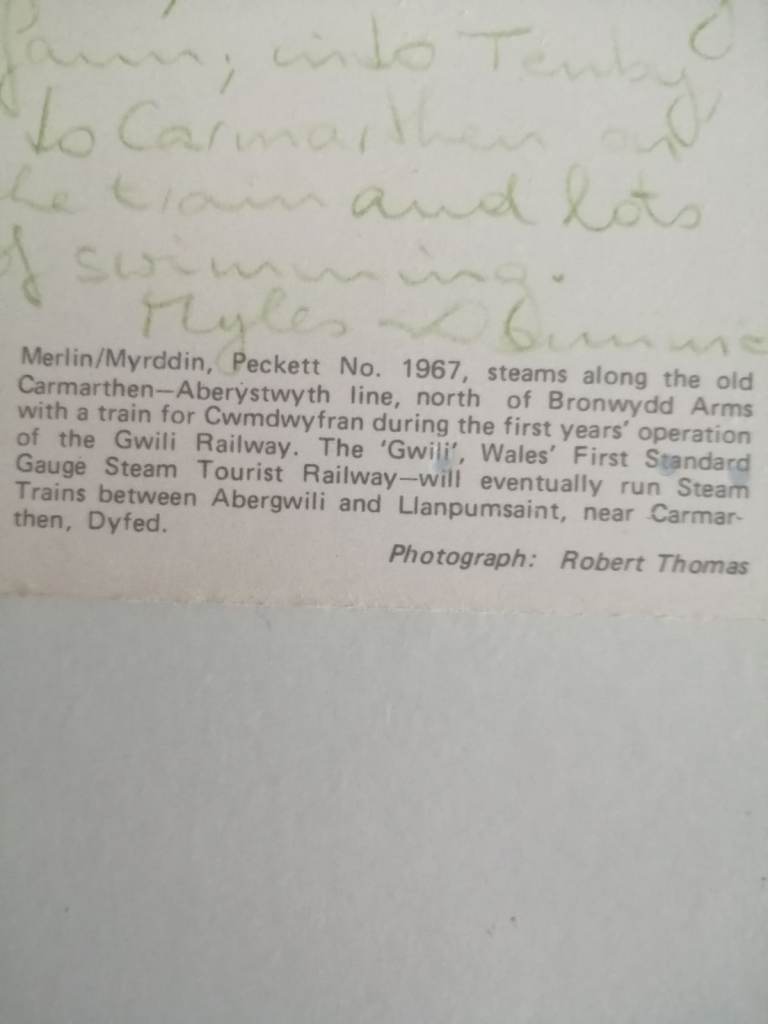 farm, into Tenby
to Carmarthen on
he train and lots
of swimming.
Myles
Merlin/Myrddin, Peckett No. 1967, steams along the old
Carmarthen—Aberystwyth line, north of Bronwydd Arms
with a train for Cwmdwyfran during the first years' operation
of the Gwili Railway. The 'Gwili', Wales' First Standard
Gauge Steam Tourist Railway—will eventually run Steam
Trains between Abergwili and Llanpumsaint, near Carmar-
then, Dyfed.
Photograph: Robert Thomas